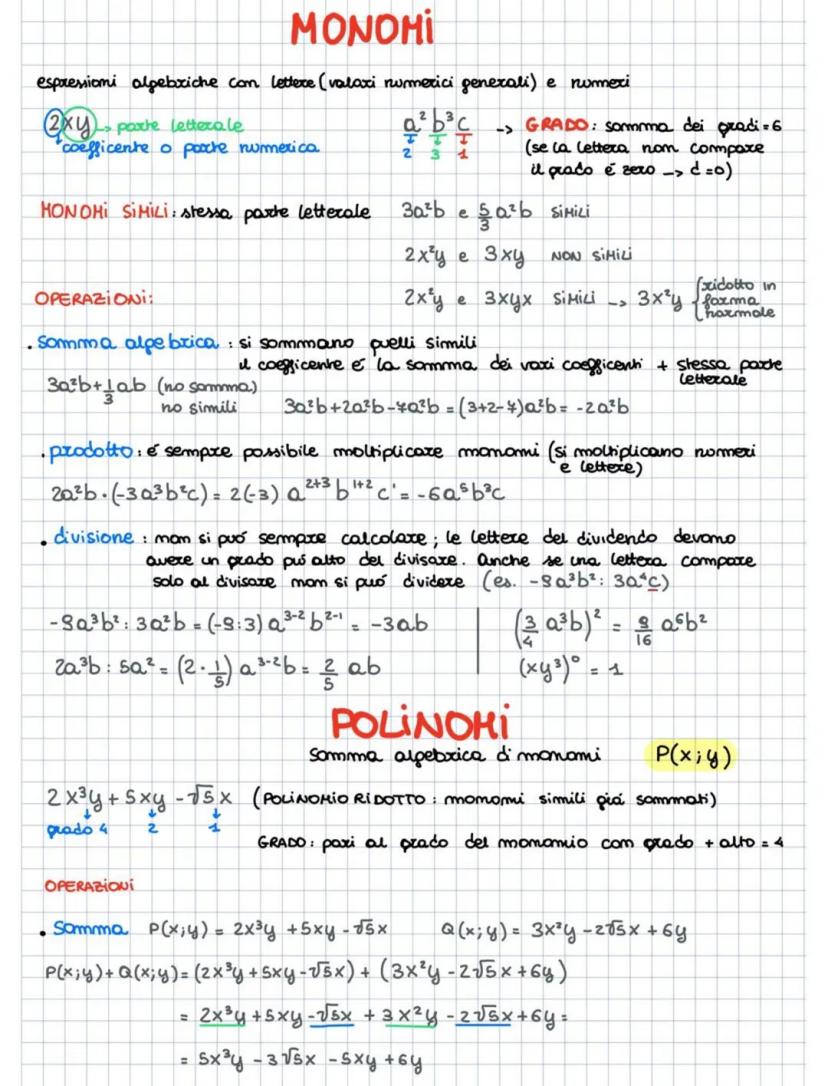 MONOMI
espressioni algebriche con lettere (valori numerici generali) e numeri
2xy -> parte letterale
coefficente o parte numerica
a² b³ c -> GRADO: somma dei gradi = 6
2 3 1 (se la lettera non compare
il grado é zero -> d=0)
MONOMI SIMILI: stessa parte letterale 3a²b e 5/3 a²b SIMILI
2x²y e 3xy NON SIMILI
OPERAZIONI: 2x²y e 3xyx SIMILI -> 3x²y {ridotto in forma normale
. somma algebrica : si sommano quelli simili
il coefficente é la somma dei vari coefficenti + stessa parte letterale
3a²b+1/3ab (no somma)
no simili 3a²b+2a²b-7a²b = (3+2-7)a²b = -2a²b
. prodotto : é sempre possibile moltiplicare monomi (si moltiplicano numeri
e lettere)
2a²b·(-3a³b²c) = 2(-3) a²⁺³ b¹⁺² c¹ = -6a⁵b³c
. divisione : non si puó sempre calcolare ; le lettere del dividendo devono
avere un grado piú alto del divisore. Anche se una lettera compare
solo al divisore non si puó dividere (es. -9a³b² : 3a⁴c)
-9a³b² : 3a²b = (-9:3) a³⁻² b²⁻¹ = -3ab (3/4 a³b)² = 9/16 a⁶b²
2a³b : 5a² = (2·1/5) a³⁻²b = 2/5 ab (xy³)⁰ = 1
POLINOMI
somma algebrica di monomi P(x;y)
2x³y + 5xy - √5 x (POLINOMIO RIDOTTO : monomi simili giá sommati)
grado 4 2 1
GRADO : pari al grado del monomio con grado + alto = 4
OPERAZIONI
. Somma P(x;y) = 2x³y + 5xy - √5x Q(x;y) = 3x²y - 2√5x + 6y
P(x;y) + Q(x;y) = (2x³y + 5xy - √5x) + (3x²y - 2√5x + 6y)
= 2x³y + 5xy - √5x + 3x²y - 2√5x + 6y =
= 5x³y - 3√5x - 5xy + 6y